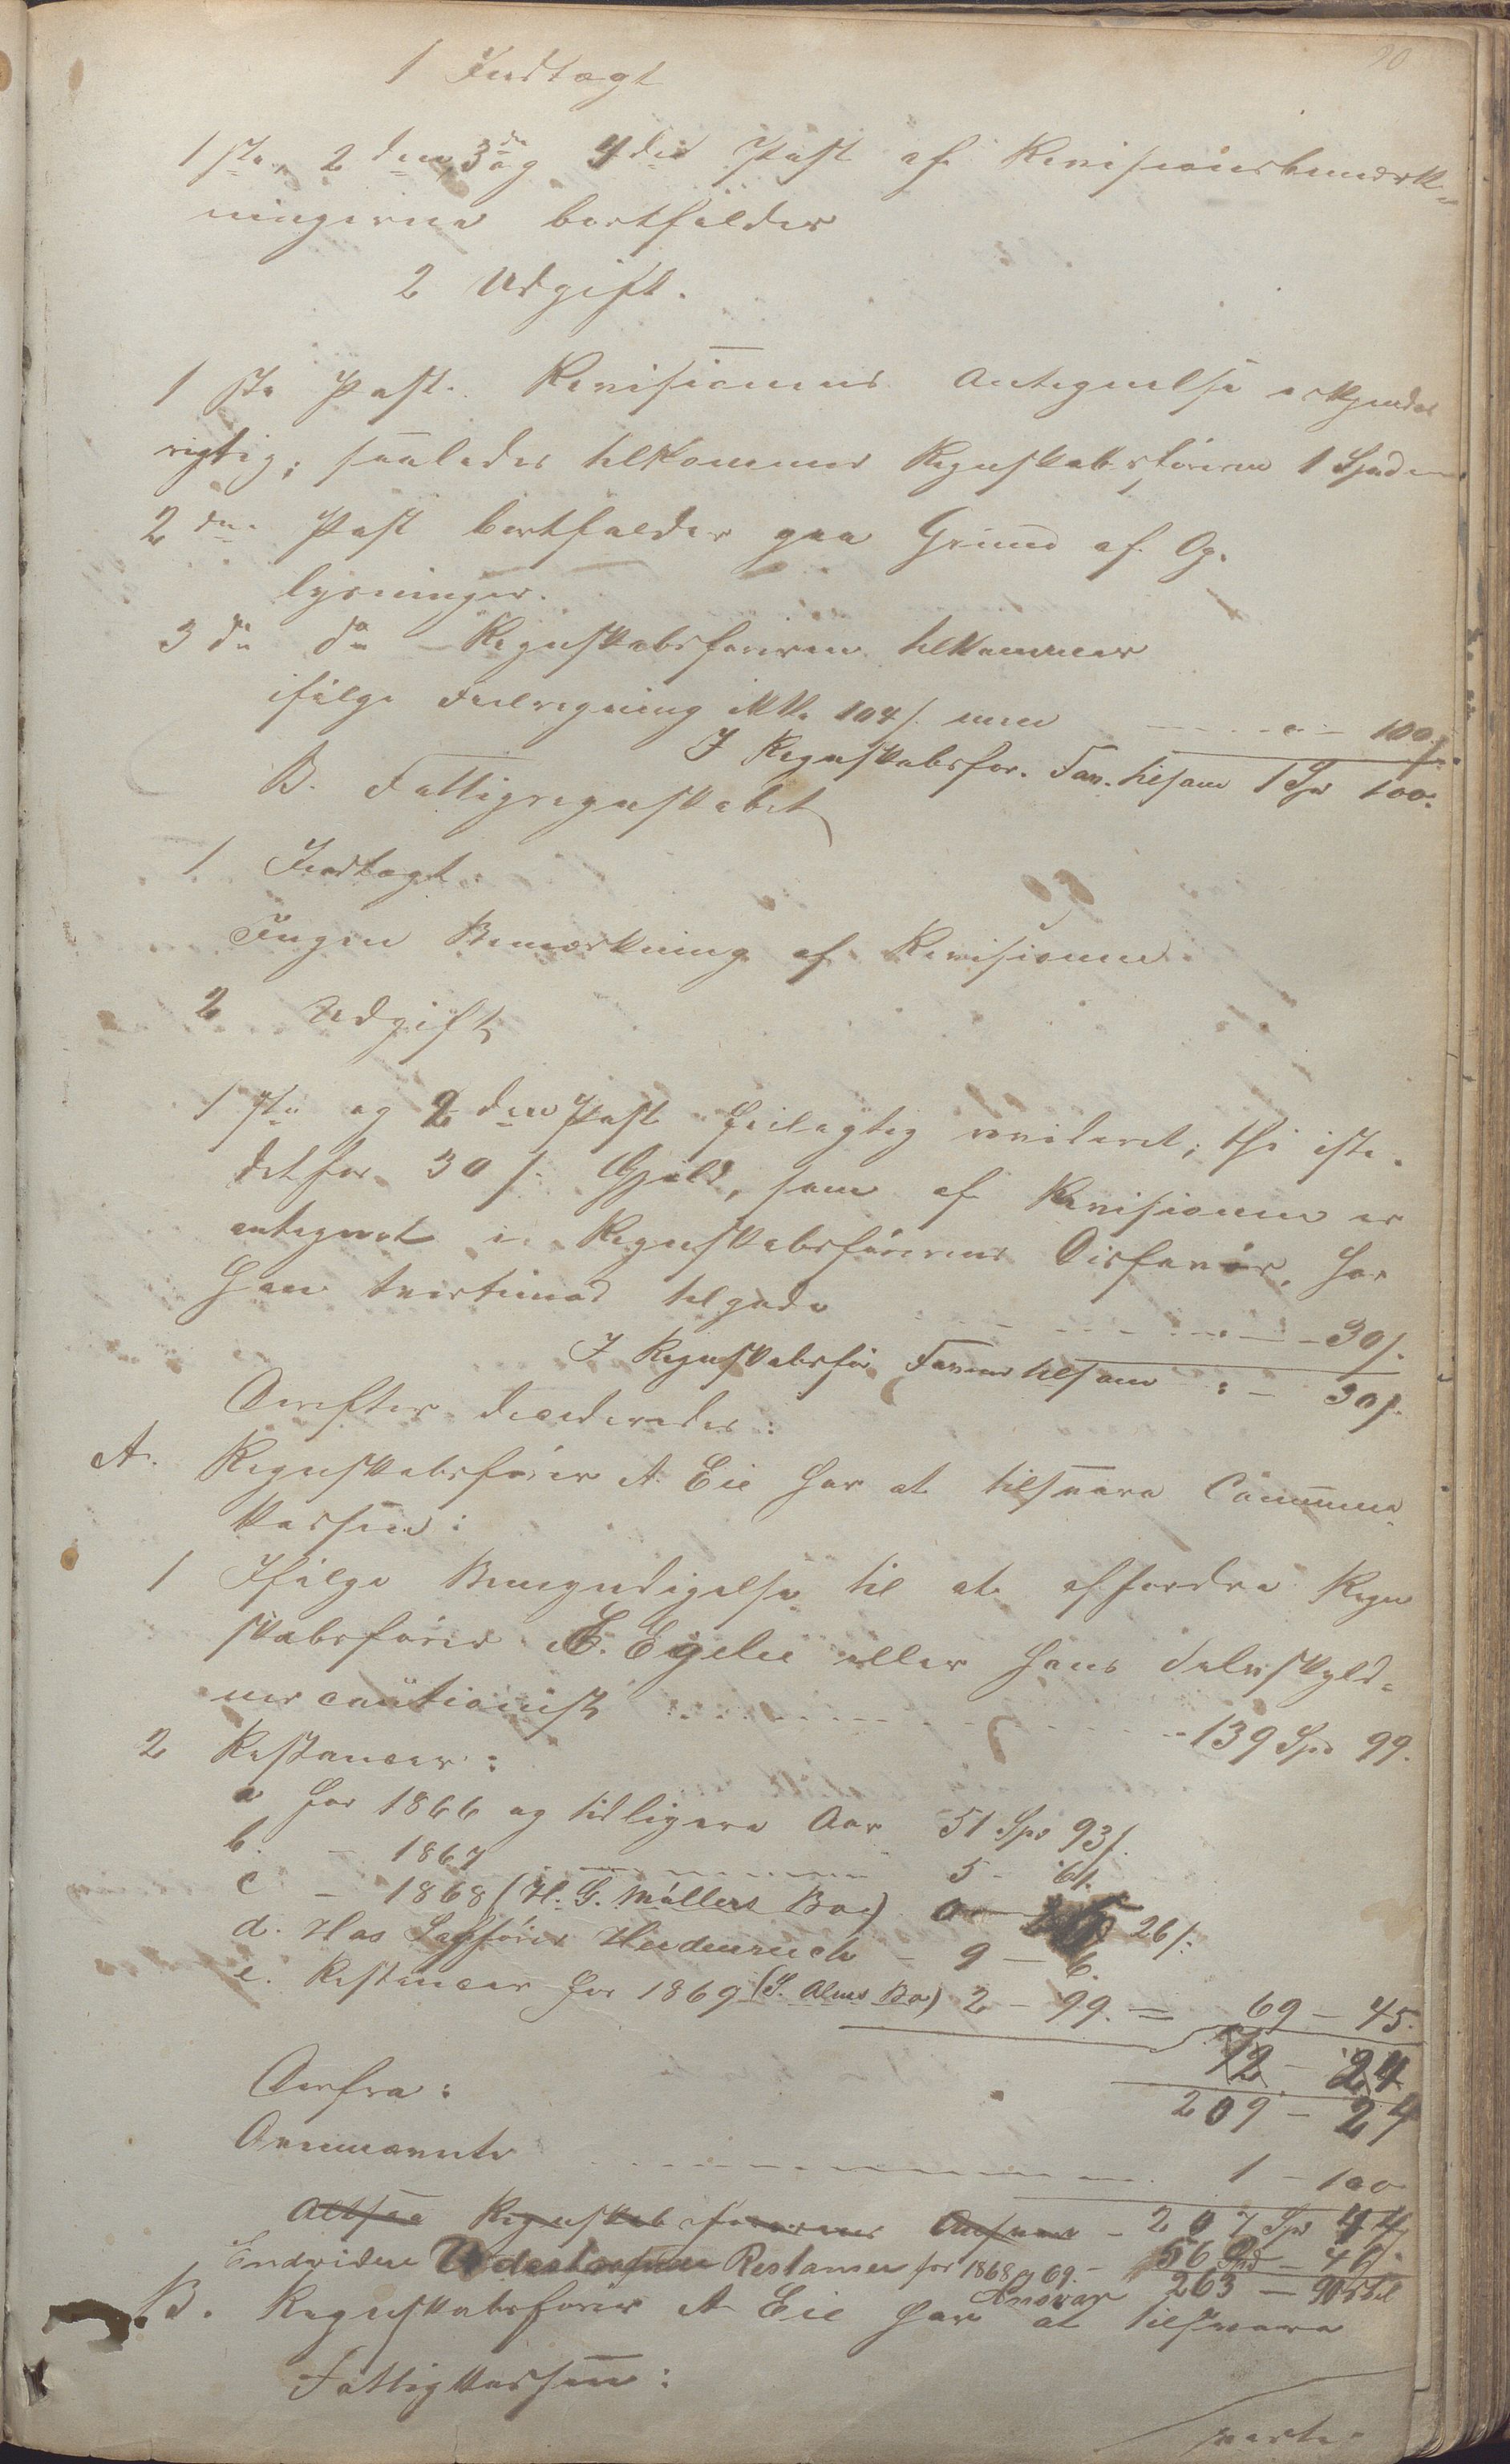 20
1 Indtægt
1ste, 2den, 3die og 4de Post af Revisionsbemærk-
ningerne bortfalder
2 Udgift.
1ste Post. Revisionens Antegnelse erkjendes
rigtig; saaledes tilkommer Regnskabsføreren 1 Spd
2den Post bortfalder paa Grund af Op-
lysninger.
3die do Regnskabsføreren tilkommer
ifølge Feilregning 104 s. men - - - 100 s.
I Regnskabsfør. Fav. tilsam 1 Spd 100.
B. Fattigregnskabet
1 Indtægt.
Ingen Bemærkning af Revisionen.
2 Udgift
1ste og 2den Post feilagtig revideret; thi iste-
detfor 30 s. Gjæld, som af Revisionen er
antegnet i Regnskabsførerens Disfavør, har
han tvertimod tilgode - - - 30 s.
I Regnskabsfør Favør tilsam : - 30 s.
Derefter decideredes:
A. Regnskabsfører A. Eie har at tilsvare Commune
kassen:
1 Ifølge Bemyndigelse til at affordre Regn
skabsfører E. Egelie eller hans Selvskyld-
nercautionist - - - 139 Spd 99.
2 Restancer:
a for 1866 og tidligere Aar 51 Spd 93 s.
b. - 1867 - - - 5 - 61.
c - 1868 (H. G. Møllers Bo) 0 - 26 s.
d. Hos Sagfører Heidenreich - 9 - 6.
e. Restancer for 1869 (S. Alms Bo) 2 - 99. = 69 - 45.
12 - 24
209 - 24
Derfra:
Ovennævnte - - - 1 - 100
Altsaa Regnskabsførerens Ansvar - 207 Spd 44
Endvidere Restancer for 1868 og 69. - 56 Spd - 46.
Ansvar 263 - 90 skil
B. Regnskabsfører A Eie har at tilsvare
Fattigkassen: